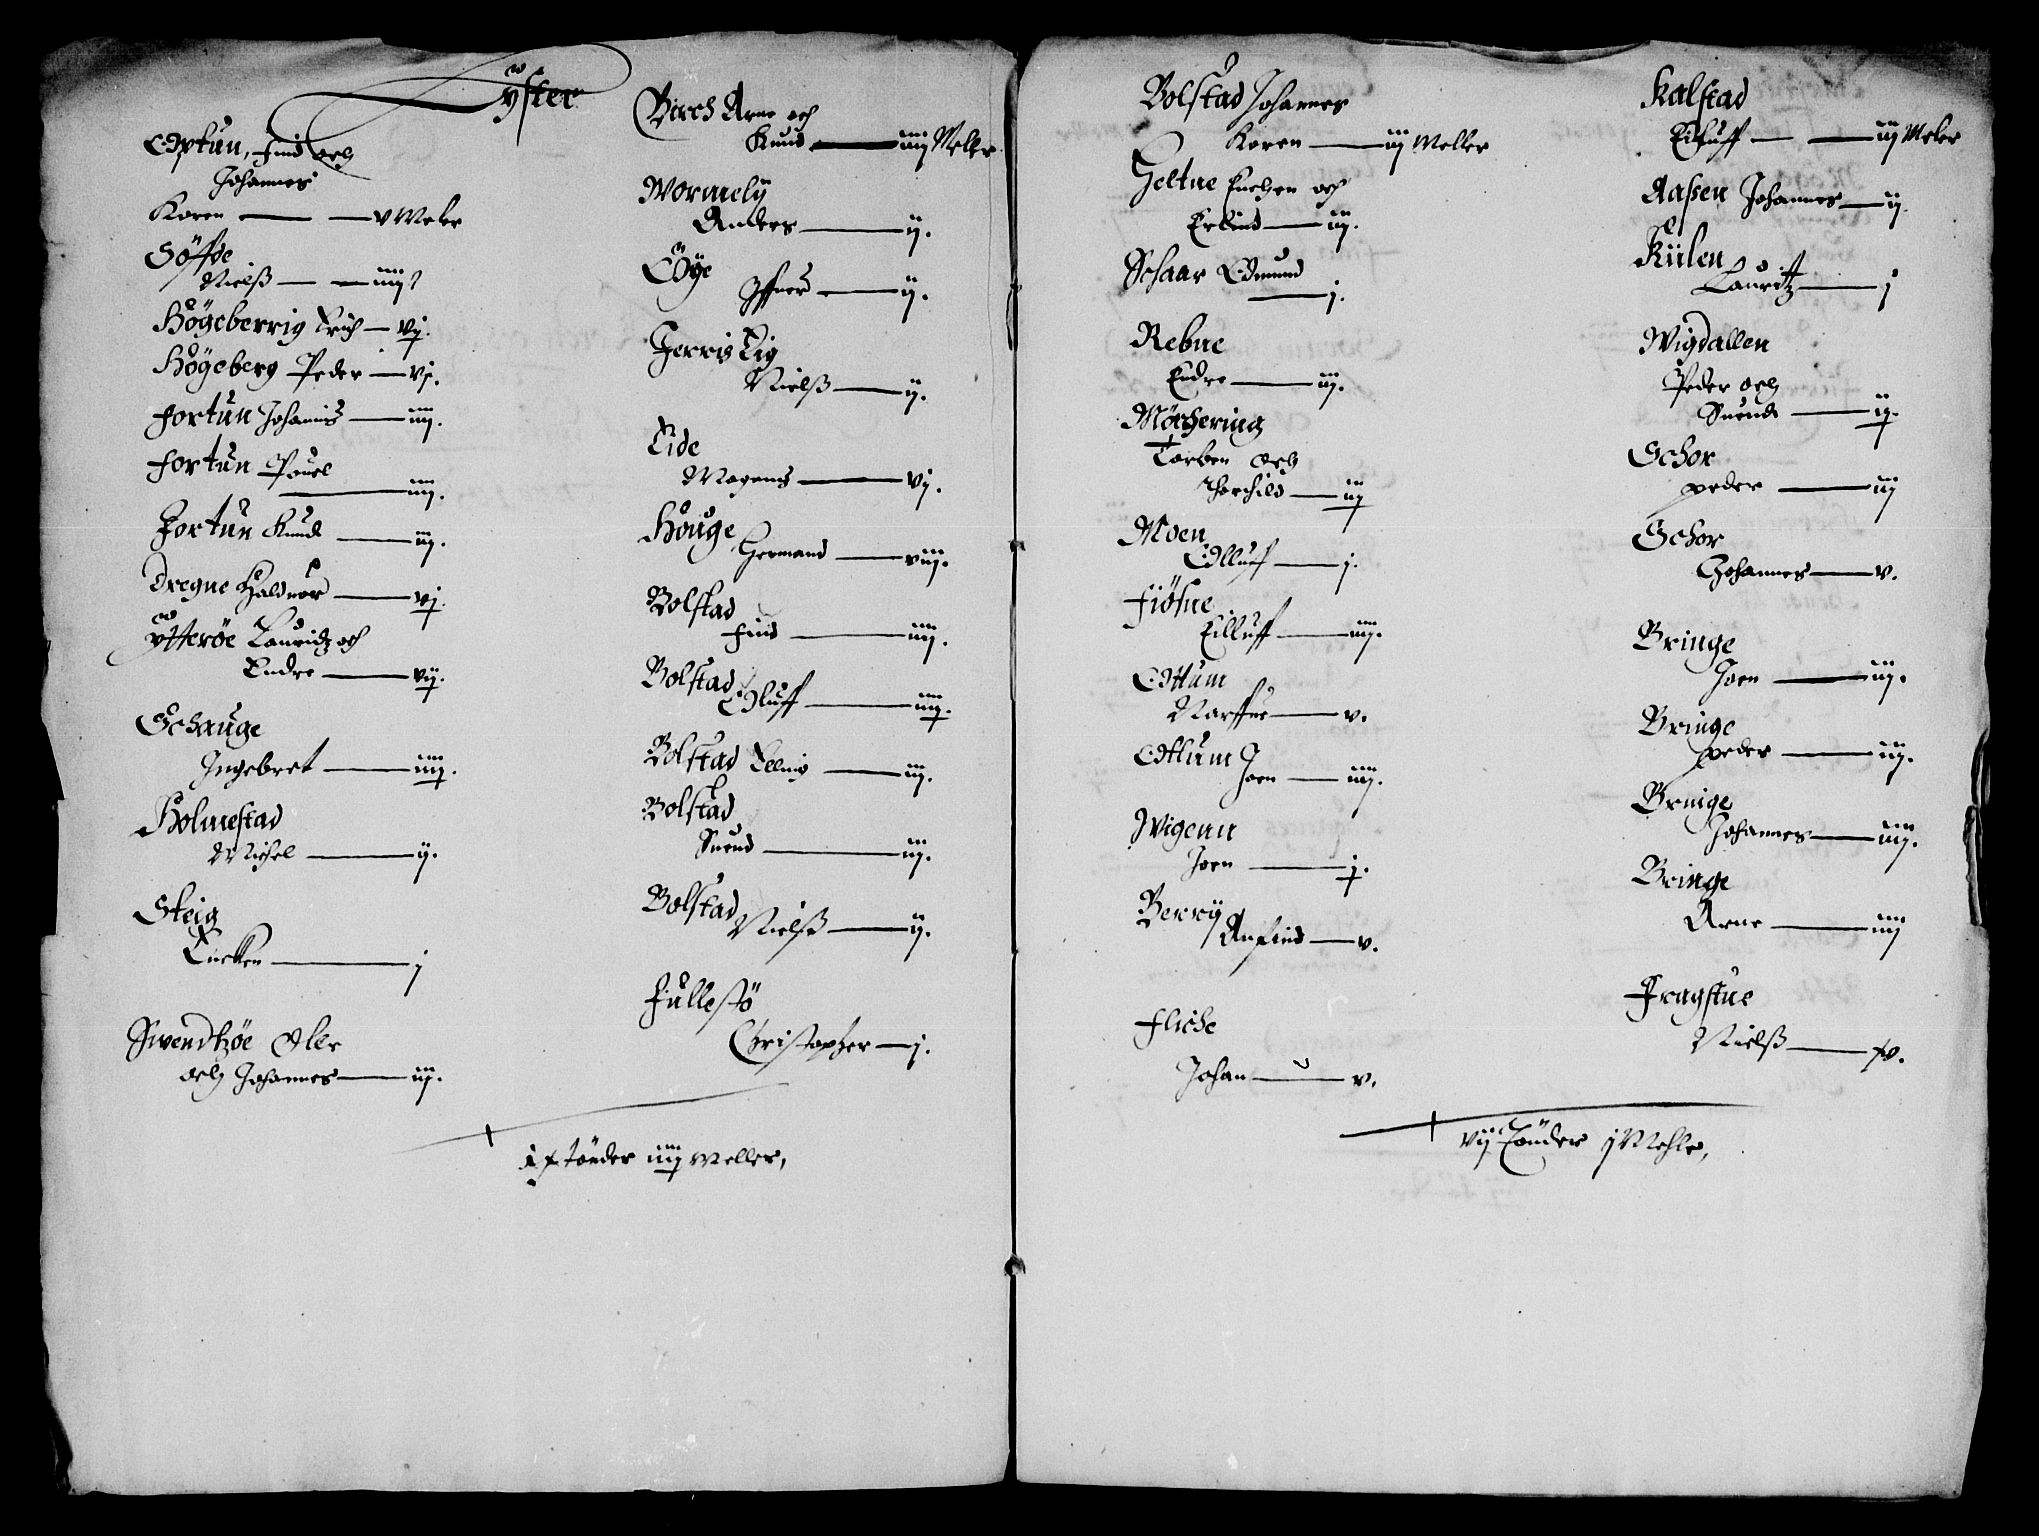 Lÿster
Optun, find och
Johannes
Koren — — v Meler
Söffde
Nielß — — iiij
Högeberrig Erich — vj.
Högeberg Peder — vj.
Fortun Johannis — iiij.
Fortun Pouel
— iiij.
Fortun Knud — iij.
Dregne Halduor — vj.
ÿtterøe Lauridtz och
Endre — vij.
Schauge
Ingebret — iiij.
Holmestad
Michel — ij.
Steig
— j
Swendtzøe Oller
och Johannes — iij.
Birch Arne och
Knud — iiij Meller
Wormelÿ
Anders — ij.
Cöÿe
Iffuer — ij.
Ferris Eig
Nielß — ij.
Eide
Mogens — vj.
Houge
Hermand — viij.
Bolstad
find — iiij.
Bolstad
Olluff — iiij.
Bolstad Elling — iij.
Bolstad
Suend — iij.
Bolstad
Nielß — ij.
Füllesö
Christopher — j.
ix tönder iiij Meller,
Bolstad Johannes
Koren — iij Meller
Geltne och
Erlind — iij.
Schaar Omund
— j.
Rebne
Endre — iij.
Möchering
Torben och
Thorchild — iij
Moen
Olluff — j.
Fiösne
Eilluff — iiij.
Ottum
Narffue — v.
Ottlum
Joen — iiij.
Wigenn
Joen — j.
Berrÿ
Anfind — v.
Fliche
Johan — v.
Kalstad
Eiluff — — iij Meler
Aaßen Johannes — ij.
Kiilen
Lauritz — j
Wigdallen
Peder och
Suend — ij.
Schor
peder — iij
Schor
Johannes — v.
Bringe
Joen — iij.
Bringe
peder — iij.
Bringe
Johannes — iiij.
Bringe
Arne — iiij
Fragstue
Nielß — xv.
vij Tönder j Mehle,